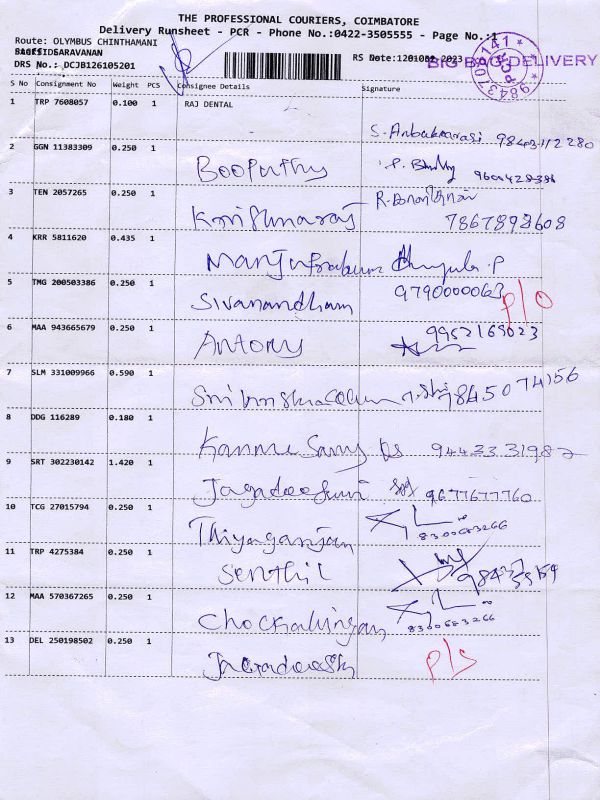 THE PROFESSIONAL COURIERS, COIMBATORE
Delivery Runsheet - PCR - Phone No.:0422-3505555 - Page No.:1
Route: OLYMBUS CHINTHAMANI
SARAVANAN
RS Date:
2023
BIG BAG DELIVERY
DRS No.: DCJB126105201
S No Consignment No Weight PCS Consignee Details Signature
1 TRP 7608057 0.100 1 RAJ DENTAL
S. Anbukkarasi
2 GGN 11383309 0.250 1 Boopathy
3 TEN 2057265 0.250 1 Krishnaraj 7867893608
4 KRR 5811620 0.435 1 Manju Manjula.P
5 TMG 200503386 0.250 1 Sivanandham 9790000063 P/O
6 MAA 943665679 0.250 1 Antony 9952169023
7 SLM 331009966 0.590 1 9845074156
8 DDG 116289 0.180 1 Kannusamy 9443331982
9 SRT 302230142 1.420 1 9677677760
10 TCG 27015794 0.250 1 Thiyaganjan 8300683266
11 TRP 4275384 0.250 1 Senthil
12 MAA 570367265 0.250 1 Chockalingam 8300683266
13 DEL 250198502 0.250 1 Jagadeesh P/S